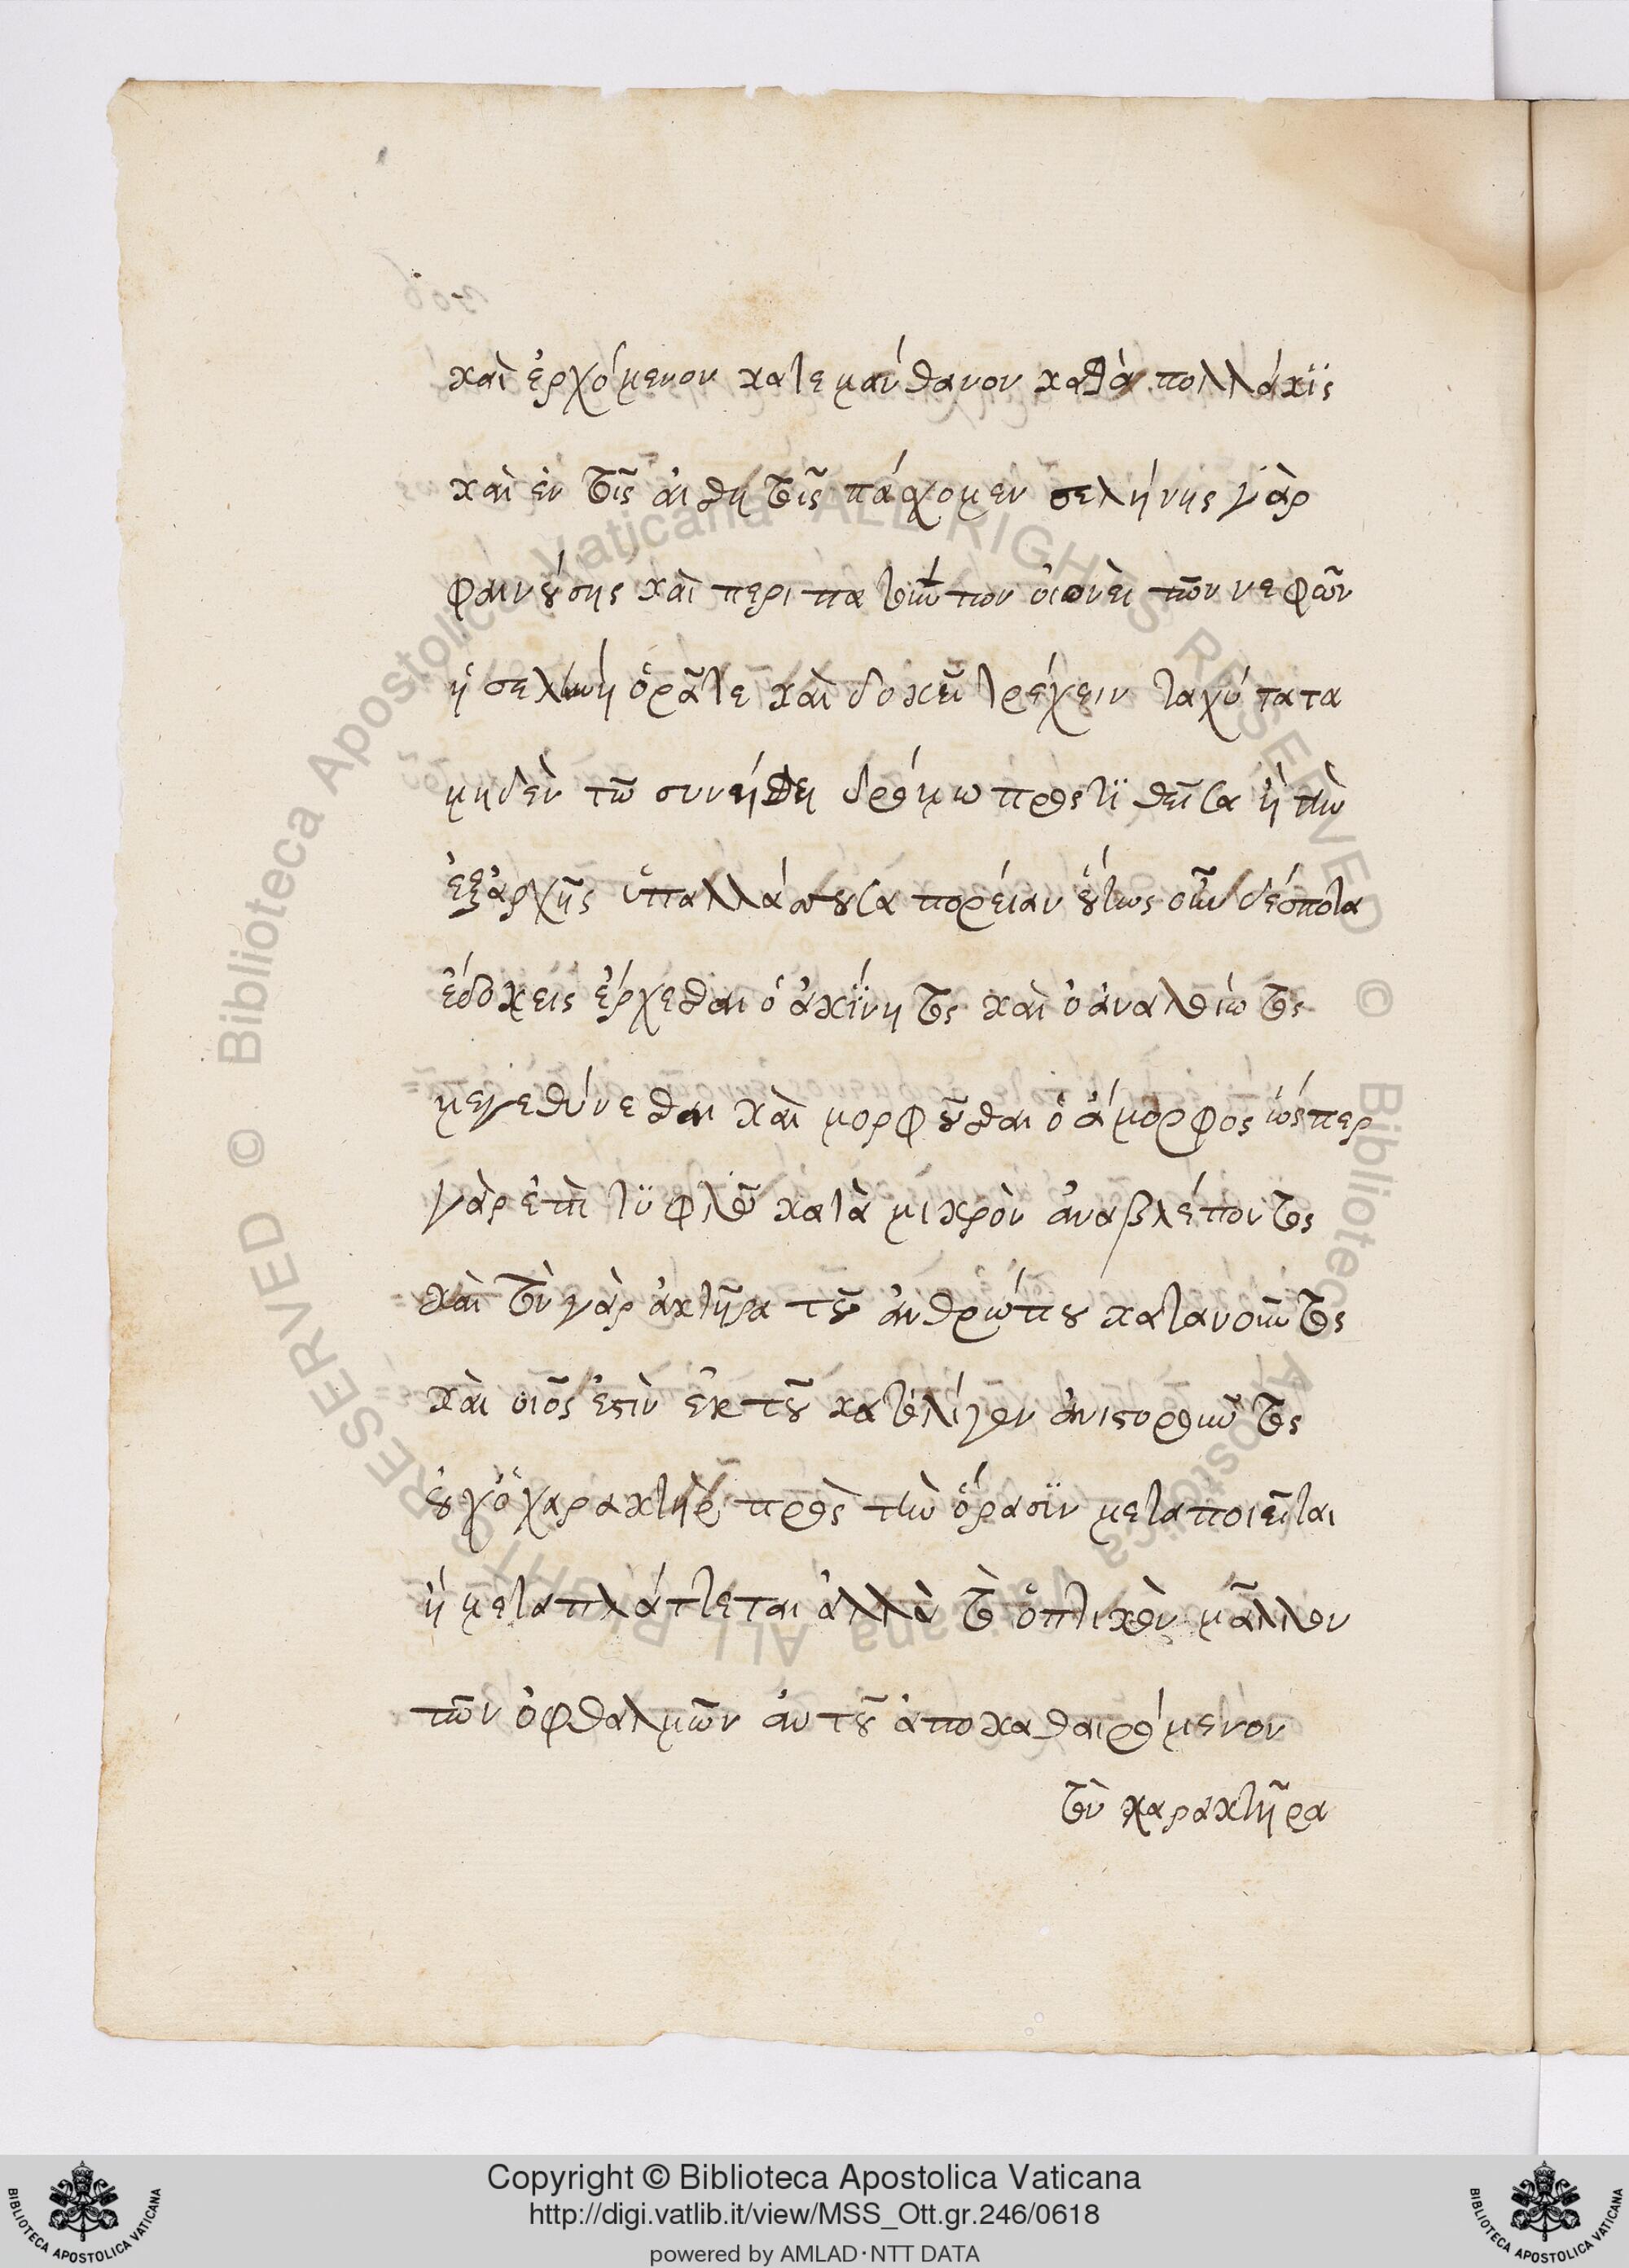 καὶ ἐρχόμενον κατεμάνθανον καθὰ πολλάκϊς
καὶ ἐν τοῖς αἰσθητοῖς πάσχομεν σελήνης γὰρ
φαινούσης καὶ περιπατούντων οἱονεὶ τῶν νεφῶν
ἡ σελήνη ὁρᾶτε καὶ δοκεῖ τρέχειν ταχύτατα
μηδὲν τῶ συνήθει δρόμω προστϊθεῖσα ἢ τὴν
ἐξαρχῆς ὑπαλλάττουσα πορείαν οὕτως οὖν δέσποτα
ἐδόκεις ἔρχεσθαι ὁ ἀκϊνητος καὶ ὁ ἀναλοίωτος
μεγεθύνεσθαι καὶ μορφοῦσθαι ὁ ἄμορφος ὥσπερ
γὰρ ἐπὶ τϋφλοῦ κατὰ μικρὸν ἀναβλέποντος
καὶ τὸν χαρακτῆρα τοῦ ἀνθρώπου κατανοοῦντος
καὶ οἷος ἐστὶν ἐκ τοῦ κατολίγον ἀνιστοροῦντος
οὐχ ὁ χαρακτὴρ πρὸς τὴν ὅρασϊν μεταποιεῖται
ἢ μεταπλάττεται ἀλλὰ τὸ ὀπτικὸν μᾶλλον
τῶν ὀφθαλμῶν αὐτοῦ ἀποκαθαιρόμενον
τὸν χαρακτῆρα
Copyright © Biblioteca Apostolica Vaticana
http://digi.vatlib.it/view/MSS_Ott.gr.246/0618
powered by AMLAD·NTT DATA
BIBLIOTECA APOSTOLICA VATICANA
BIBLIOTECA APOSTOLICA VATICANA
© Biblioteca Apostolica Vaticana ALL RIGHTS RESERVED © Biblioteca Apostolica Vaticana ALL RIGHTS RESERVED